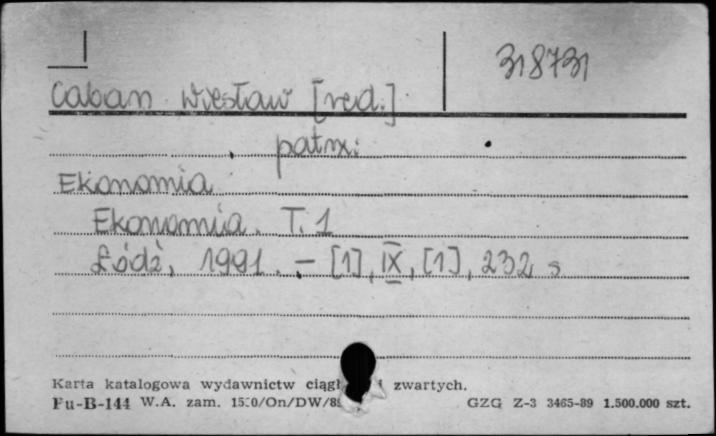 318731
Caban Wiesław [red.]
patrz:
Ekonomia
Ekonomia. T. 1
Łódź, 1991. - [1], IX, [1], 232 s
Karta katalogowa wydawnictw zwartych.
Pu-B-144 W.A. zam. GZG Z-3 3465-89 1.500.000 szt.